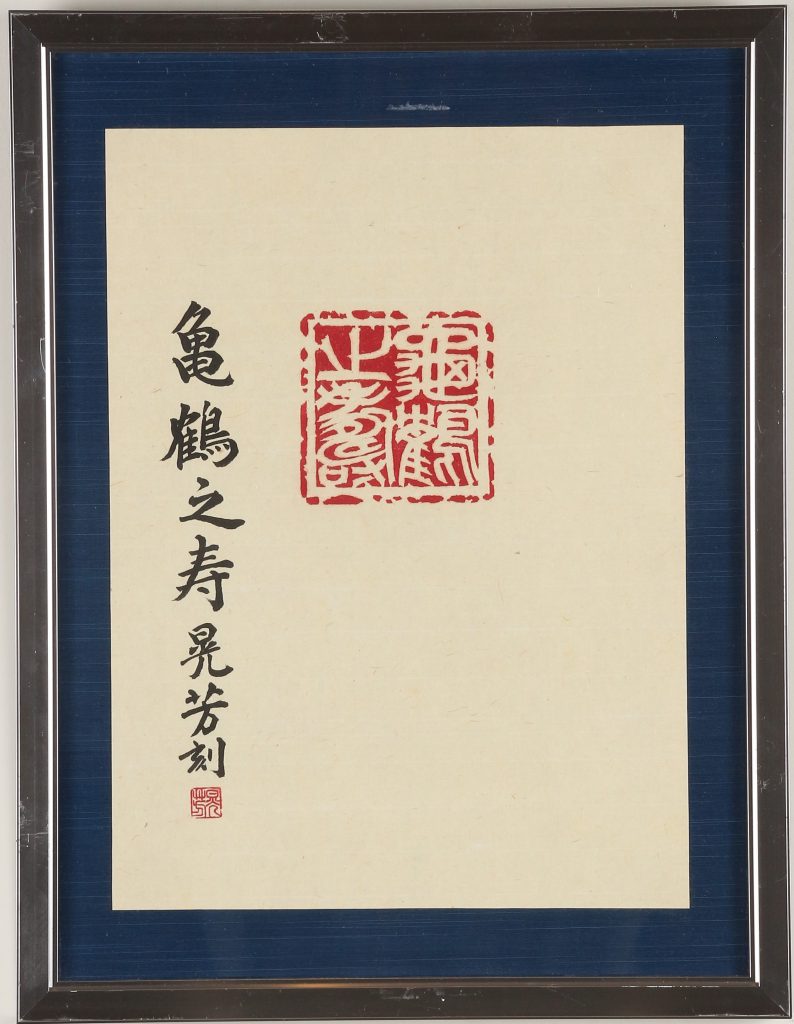 龜鶴
之壽
亀鶴之寿 晃芳刻
晃芳